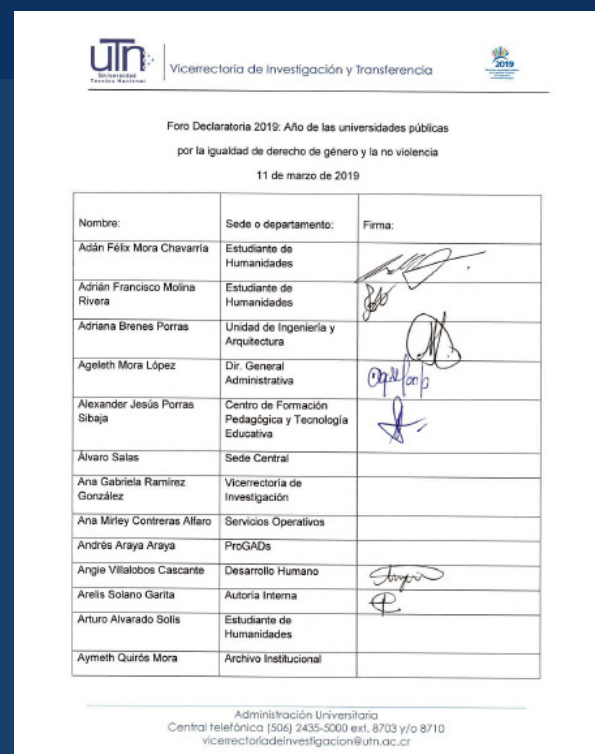 utn
Universidad
Técnica Nacional
Vicerrectoría de Investigación y Transferencia
2019
Foro Declaratoria 2019: Año de las universidades públicas
por la igualdad de derecho de género y la no violencia
11 de marzo de 2019
Nombre: Sede o departamento: Firma:
Adán Félix Mora Chavarría Estudiante de
Humanidades
Adrián Francisco Molina Estudiante de
Rivera Humanidades
Adriana Brenes Porras Unidad de Ingeniería y
Arquitectura
Ageleth Mora López Dir. General
Administrativa
Alexander Jesús Porras Centro de Formación
Sibaja Pedagógica y Tecnología
Educativa
Álvaro Salas Sede Central
Ana Gabriela Ramírez Vicerrectoría de
González Investigación
Ana Mirley Contreras Alfaro Servicios Operativos
Andrés Araya Araya ProGADs
Angie Villalobos Cascante Desarrollo Humano
Arelis Solano Garita Autoria Interna
Arturo Alvarado Solís Estudiante de
Humanidades
Aymeth Quirós Mora Archivo Institucional
Administración Universitaria
Central telefónica (506) 2435-5000 ext. 8703 y/o 8710
vicerrectoriadeinvestigacion@utn.ac.cr